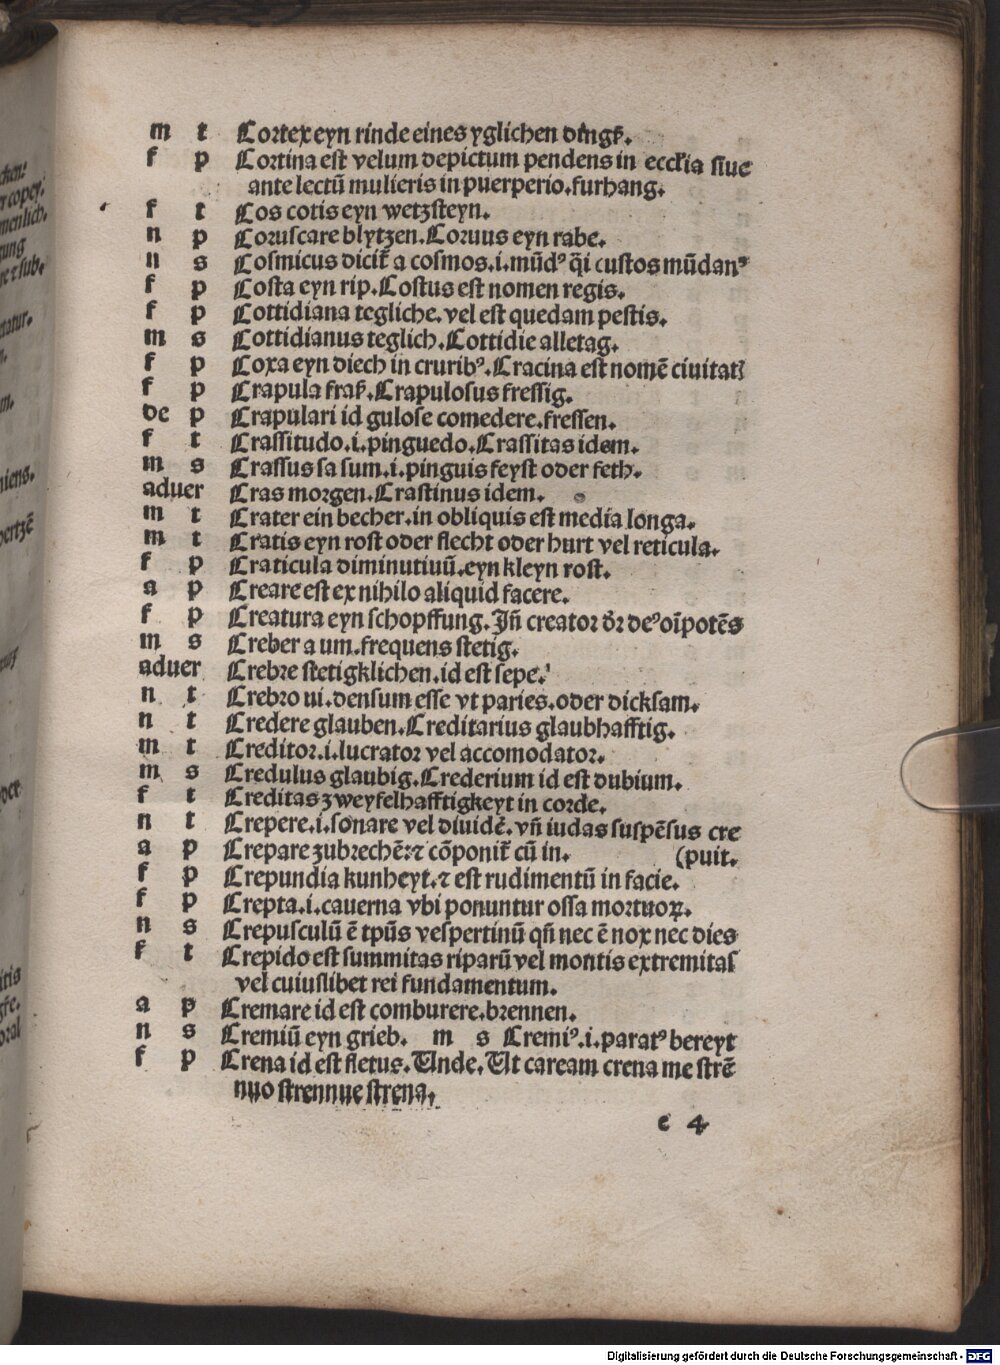 m t Cortex eyn rinde eines yglichen dingß.
f p Cortina est velum depictum pendens in eccľia siue
ante lectū mulieris in puerperio. furhang.
f t Cos cotis eyn wetzsteyn.
n p Coruscare blytzen. Coruus eyn rabe.
n s Cosmicus dicit̃ a cosmos .i. mūdꝰ q̄i custos mūdanꝰ
f p Costa eyn rip. Costus est nomen regis.
f p Cottidiana tegliche. vel est quedam pestis.
m s Cottidianus teglich. Cottidie alletag.
f p Coxa eyn diech in cruribꝰ. Cracina est nomē ciuitatꝭ
f p Crapula fraß. Crapulosus fressig.
de p Crapulari id gulose comedere. fressen.
f t Crassitudo .i. pinguedo. Crassitas idem.
m s Crassus sa sum .i. pinguis feyst oder feth.
aduer Cras morgen. Crastinus idem.
m t Crater ein becher. in obliquis est media longa.
m t Cratis eyn rost oder flecht oder hurt vel reticula.
f p Craticula diminutiuū. eyn kleyn rost.
a p Creare est ex nihilo aliquid facere.
f p Creatura eyn schopffung. Jñ creator dr̄ deꝰ oīpotēs
m s Creber a um. frequens stetig.
aduer Crebre stetigklichen. id est sepe.
n t Crebro ui. densum esse vt paries. oder dicksam.
n t Credere glauben. Creditarius glaubhafftig.
m t Creditor .i. lucrator vel accomodator.
m s Credulus glaubig. Crederium id est dubium.
f t Creditas zweyfelhafftigkeyt in corde.
n t Crepere .i. sonare vel diuidē. vñ iudas suspēsus cre
a p Crepare zubrechē: ⁊ cōponit̃ cū in. (puit.
f p Crepundia kunheyt. ⁊ est rudimentū in facie.
f p Crepta .i. cauerna vbi ponuntur ossa mortuoꝝ.
n s Crepusculū ē tp̄us vespertinū qñ nec ē nox nec dies
f t Crepido est summitas riparū vel montis extremitas
vel cuiuslibet rei fundamentum.
a p Cremare id est comburere. brennen.
n s Cremiū eyn grieb. m s Cremiꝰ .i. paratꝰ bereyt
f p Crena id est fletus. Unde. Ut caream crena me strē
nuo strennue strena.
c 4
Digitalisierung gefördert durch die Deutsche Forschungsgemeinschaft - DFG